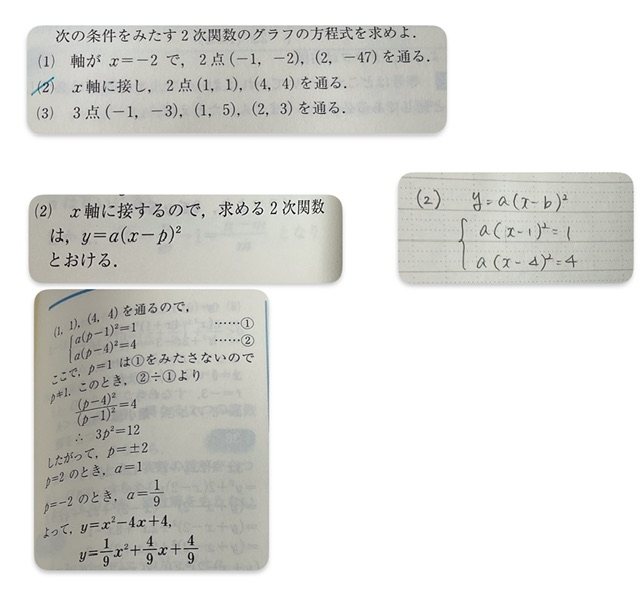 次の条件をみたす2次関数のグラフの方程式を求めよ.
(1) 軸が x=−2 で, 2点(−1, −2), (2, −47)を通る.
(2) x軸に接し, 2点(1, 1), (4, 4)を通る.
(3) 3点(−1, −3), (1, 5), (2, 3)を通る.
(2) x軸に接するので, 求める2次関数
は, y=a(x−p)²
とおける.
(2) y=a(x-b)²
a(x-1)²=1
a(x-4)²=4
(1, 1), (4, 4)を通るので,
a(p−1)²=1 ……①
a(p−4)²=4 ……②
ここで, p=1 は①をみたさないので
p≠1. このとき, ②÷①より
(p−4)²/(p−1)²=4
∴ 3p²=12
したがって, p=±2
p=2 のとき, a=1
p=−2 のとき, a=1/9
よって, y=x²−4x+4,
y=1/9x²+4/9x+4/9